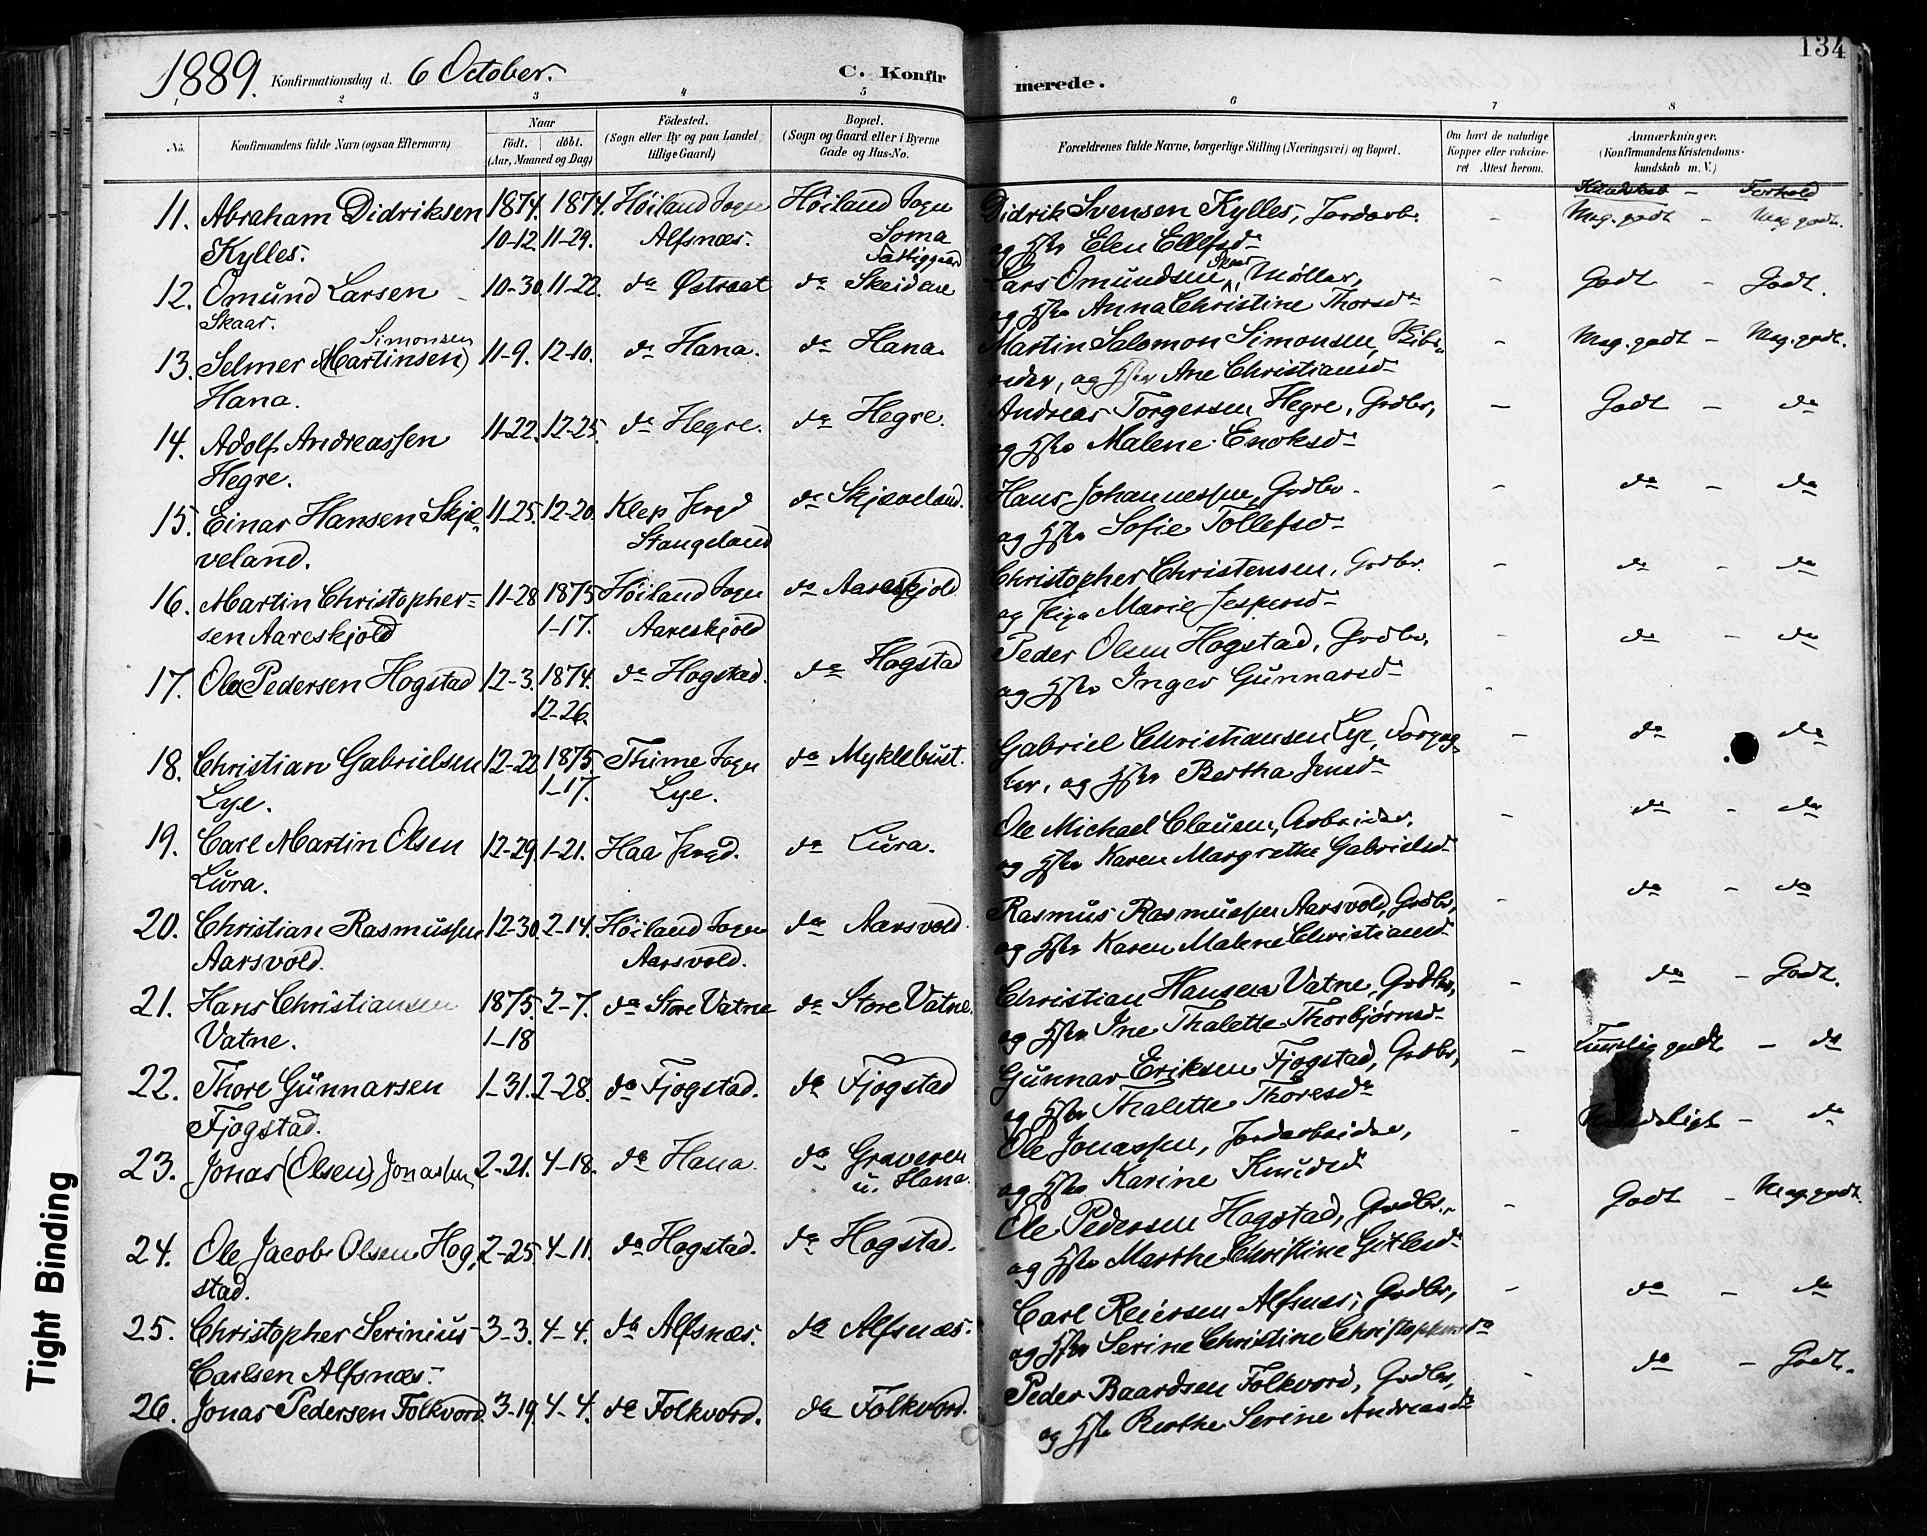 134
1889. Konfirmationsdag d. 6 October. C. Konfirmerede.
1 2 3 4 5 6 7 8
No. Konfirmandens fulde Navn (ogsaa Efternavn) Naar født. døbt. (Aar, Maaned og Dag) Fødested. (Sogn eller By og paa Landet tillige Gaard) Bopæl. (Sogn og Gaard eller i Byerne Gade og Hus-No. Forældrenes fulde Navne, borgerlige Stilling (Næringsvei) og Bopæl. Om havt de naturlige Kopper eller vaccineret Attest herom. Anmærkninger. (Konfirmandens Kristendomskundskab m. V.)
Kundskab - Forhold
11. Abraham Didriksen 1874. 1874. Høiland Sogn Høiland Sogn Didrik Svensen Kylles, Jordarb. - Meg. godt - Meg. godt.
Kylles. 10-12. 11-29. Alfsnæs. Soma Fattiggaard og Hstr Elen Ellefsd
12. Omund Larsen - 10-30. 11-22. do Østraat do Skeidene Lars Omundsen Skaar, Møller, - Godt - Godt.
Skaar. og Hstr Anna Christine Thorsd
13. Selmer (Martinsen) Simonsen 11-9. 12-10. do Hana. do Hana. Martin Salomon Simonsen, - Meg. godt - Meg. godt.
Hana. og Hstr Ane Christiansd
14. Adolf Andreassen 11-22. 12-25. do Hegre. do Hegre. Andreas Torgersen Hegre, Grdbr, - Godt - do
Hegre. og Hstr Malene Enoksd
15. Einar Hansen Skjæ- 11-25. 12-20. Klep Prgd do Skjæveland. Hans Johannessen, Grdbr. - do - do
veland. Stangeland og Hstr Sofie Tollefsd
16. Martin Christopher- 11-28 1875 Høiland Sogn do Aareskjold Christopher Christensen, Grdbr. - do - do
sen Aareskjold 1-17. Aareskjold og Pige Marie Jespersd
17. Ola Pedersen Hogstad 12-3. 1874. do Hogstad. do Hogstad Peder Olsen Hogstad, Grdbr, - do - do
12-26. og Hstr Inger Gunnarsd -
18. Christian Gabrielsen 12-22 1875 Thime Sogn do Myklebust. Gabriel Christiansen Lye, Forpag- - do do
Lye. 1-17. Lye. ter, og Hstr Bertha Jensd
19. Carl Martin Olsen 12-29. 1-21. Haa Prgd. do Lura. Ole Michael Clausen, Arbeider, - do - do
Lura. og Hstr Karen Margrethe Gabrielsd
20. Christian Rasmussen 12-30. 2-14. Høiland Sogn do Aarsvold. Rasmus Rasmussen Aarsvold, Grdbr, - do - do
Aarsvold. Aarsvold. og Hstr Karen Malene Christiansd
21. Hans Christiansen 1875. 2-7. do Store Vatne do Store Vatne. Christian Hansen Vatne, Grdbr, - do - Godt.
Vatne. 1-18 og Hstr Ine Thalette Thorbjørnsd
22. Thore Gunnarsen 1-31. 2-28. do Fjogstad. do Fjogstad Gunnar Eriksen Fjogstad, Grdbr, - Temlig godt - do
Fjogstad. og Hstr Thalette Thoresd
23. Jonas (Olsen) Jonassen 2-21. 4-18. do Hana. do Graveren u. Hana. Ole Jonassen, Jordarbeider, - - do
og Hstr Karine Knudsd
24. Ole Jacob Olsen Hog- 2-25. 4-11. do Hogstad. do Hogstad. Ole Pedersen Hogstad, Grdbr., - Godt - Meg. godt.
stad. og Hstr Marthe Christine Gitlesd
25. Christopher Serinius 3-3. 4-4. do Alfsnæs. do Alfsnæs. Carl Reiersen Alfsnæs, Grdbr, - do - do
Carlsen Alfsnæs. og Hstr Serine Christine Christophersd
26. Jonas Pedersen Folkvord. 3-19. 4-4. do Folkvord. do Folkvord. Peder Baardsen Folkvord, Grdbr, - do - Godt.
og Hstr Berthe Serine Andreasd
Tight Binding